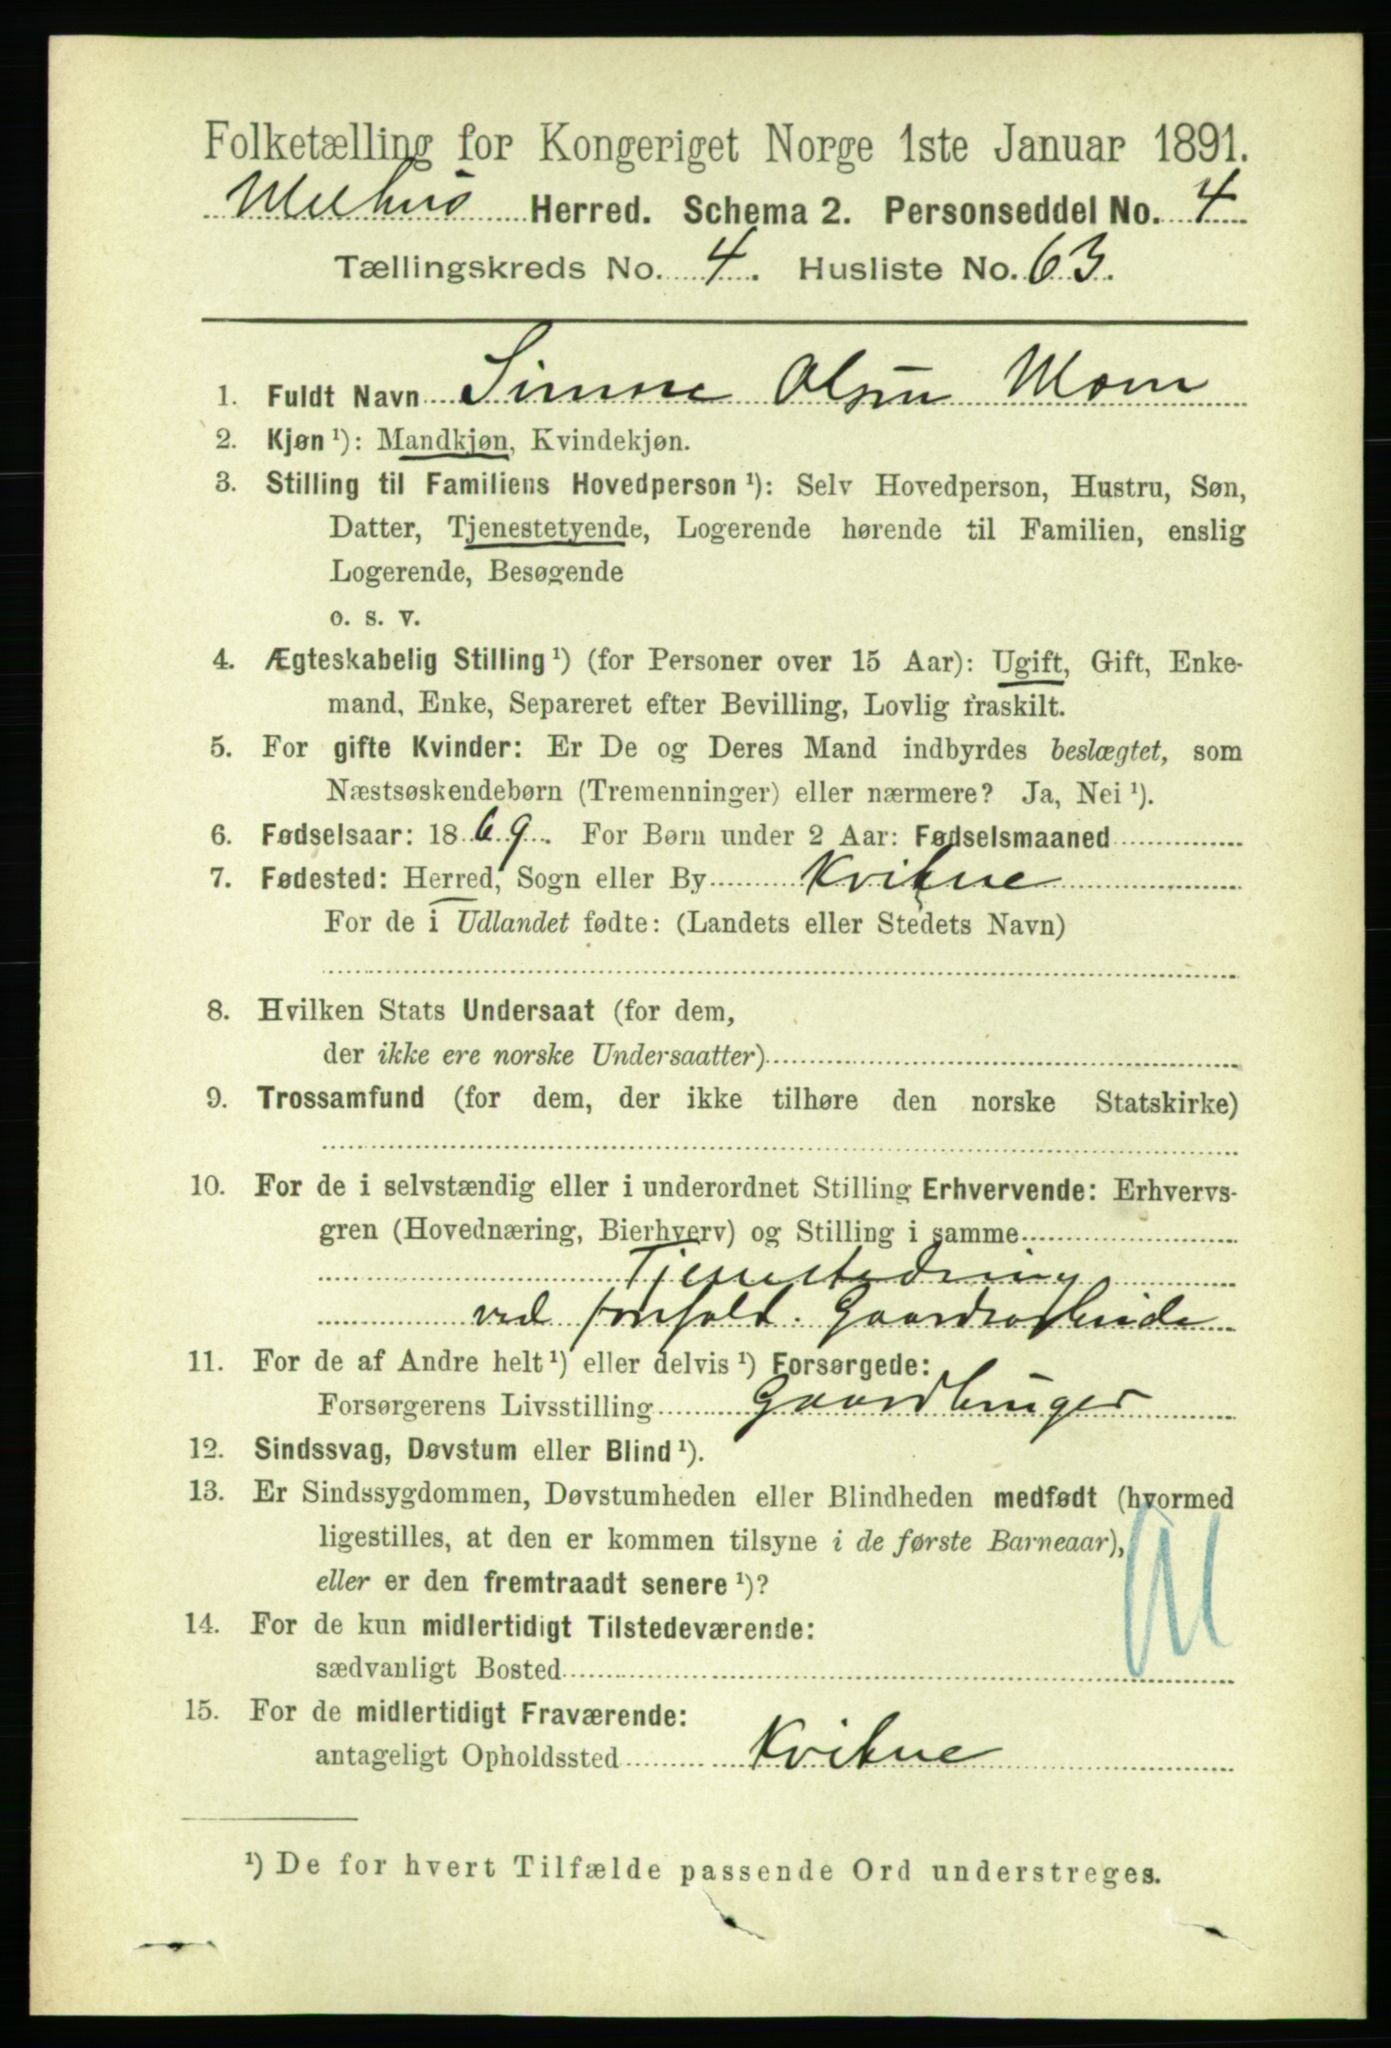 Folketælling for Kongeriget Norge 1ste Januar 1891.
Melhus Herred. Schema 2. Personseddel No. 4
Tællingskreds No. 4. Husliste No. 63.
1. Fuldt Navn Simen Olsen Moen
2. Kjøn ¹): Mandkjøn, Kvindekjøn.
3. Stilling til Familiens Hovedperson ¹): Selv Hovedperson, Hustru, Søn,
Datter, Tjenestetyende, Logerende hørende til Familien, enslig
Logerende, Besøgende
o. s. v.
4. Ægteskabelig Stilling ¹) (for Personer over 15 Aar): Ugift, Gift, Enke-
mand, Enke, Separeret efter Bevilling, Lovlig fraskilt.
5. For gifte Kvinder: Er De og Deres Mand indbyrdes beslægtet, som
Næstsøskendebørn (Tremenninger) eller nærmere? Ja, Nei ¹).
6. Fødselsaar: 1869. For Børn under 2 Aar: Fødselsmaaned
7. Fødested: Herred, Sogn eller By Kvikne
For de i Udlandet fødte: (Landets eller Stedets Navn)
8. Hvilken Stats Undersaat (for dem,
der ikke ere norske Undersaatter)
9. Trossamfund (for dem, der ikke tilhøre den norske Statskirke)
10. For de i selvstændig eller i underordnet Stilling Erhvervende: Erhvervs-
gren (Hovednæring, Bierhverv) og Stilling i samme
Tjenestedreng
ved forefald. Gaardsarbeide
11. For de af Andre helt ¹) eller delvis ¹) Forsørgede:
Forsørgerens Livsstilling Gaardbruger
12. Sindssvag, Døvstum eller Blind ¹).
13. Er Sindssygdommen, Døvstumheden eller Blindheden medfødt (hvormed
ligestilles, at den er kommen tilsyne i de første Barneaar),
eller er den fremtraadt senere ¹)?
14. For de kun midlertidigt Tilstedeværende:
sædvanligt Bosted
15. For de midlertidigt Fraværende:
antageligt Opholdssted Kvikne
¹) De for hvert Tilfælde passende Ord understreges.